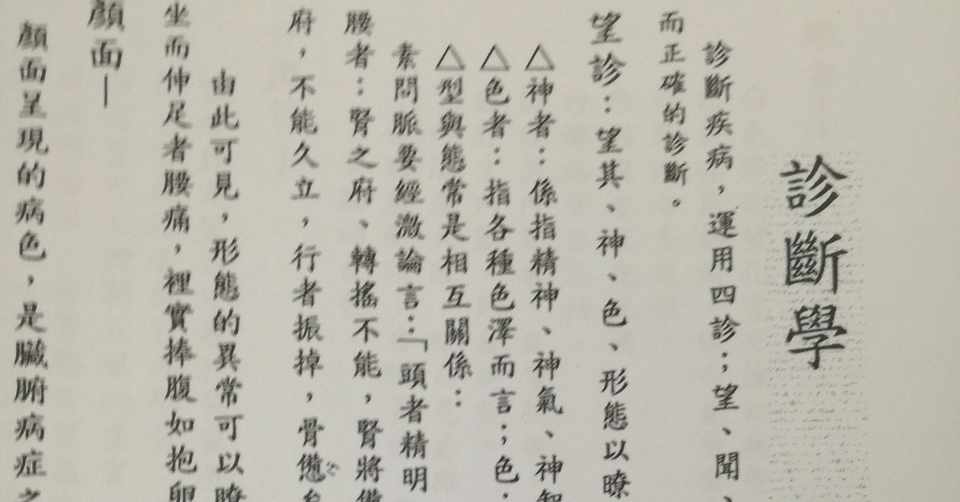 診斷學
診斷疾病，運用四診；望、聞、
而正確的診斷。
望診：望其、神、色、形態以瞭
△神者：係指精神、神氣、神智
△色者：指各種色澤而言；色，
△型與態常是相互關係：
素問脈要經激論言：「頭者精明
腰者：腎之府、轉搖不能，腎將憊
府，不能久立，行者振掉，骨憊矣
由此可見，形態的異常可以瞭
坐而伸足者腰痛，裡實捧腹如抱卵
顏面—
顏面呈現的病色，是臟腑病症之